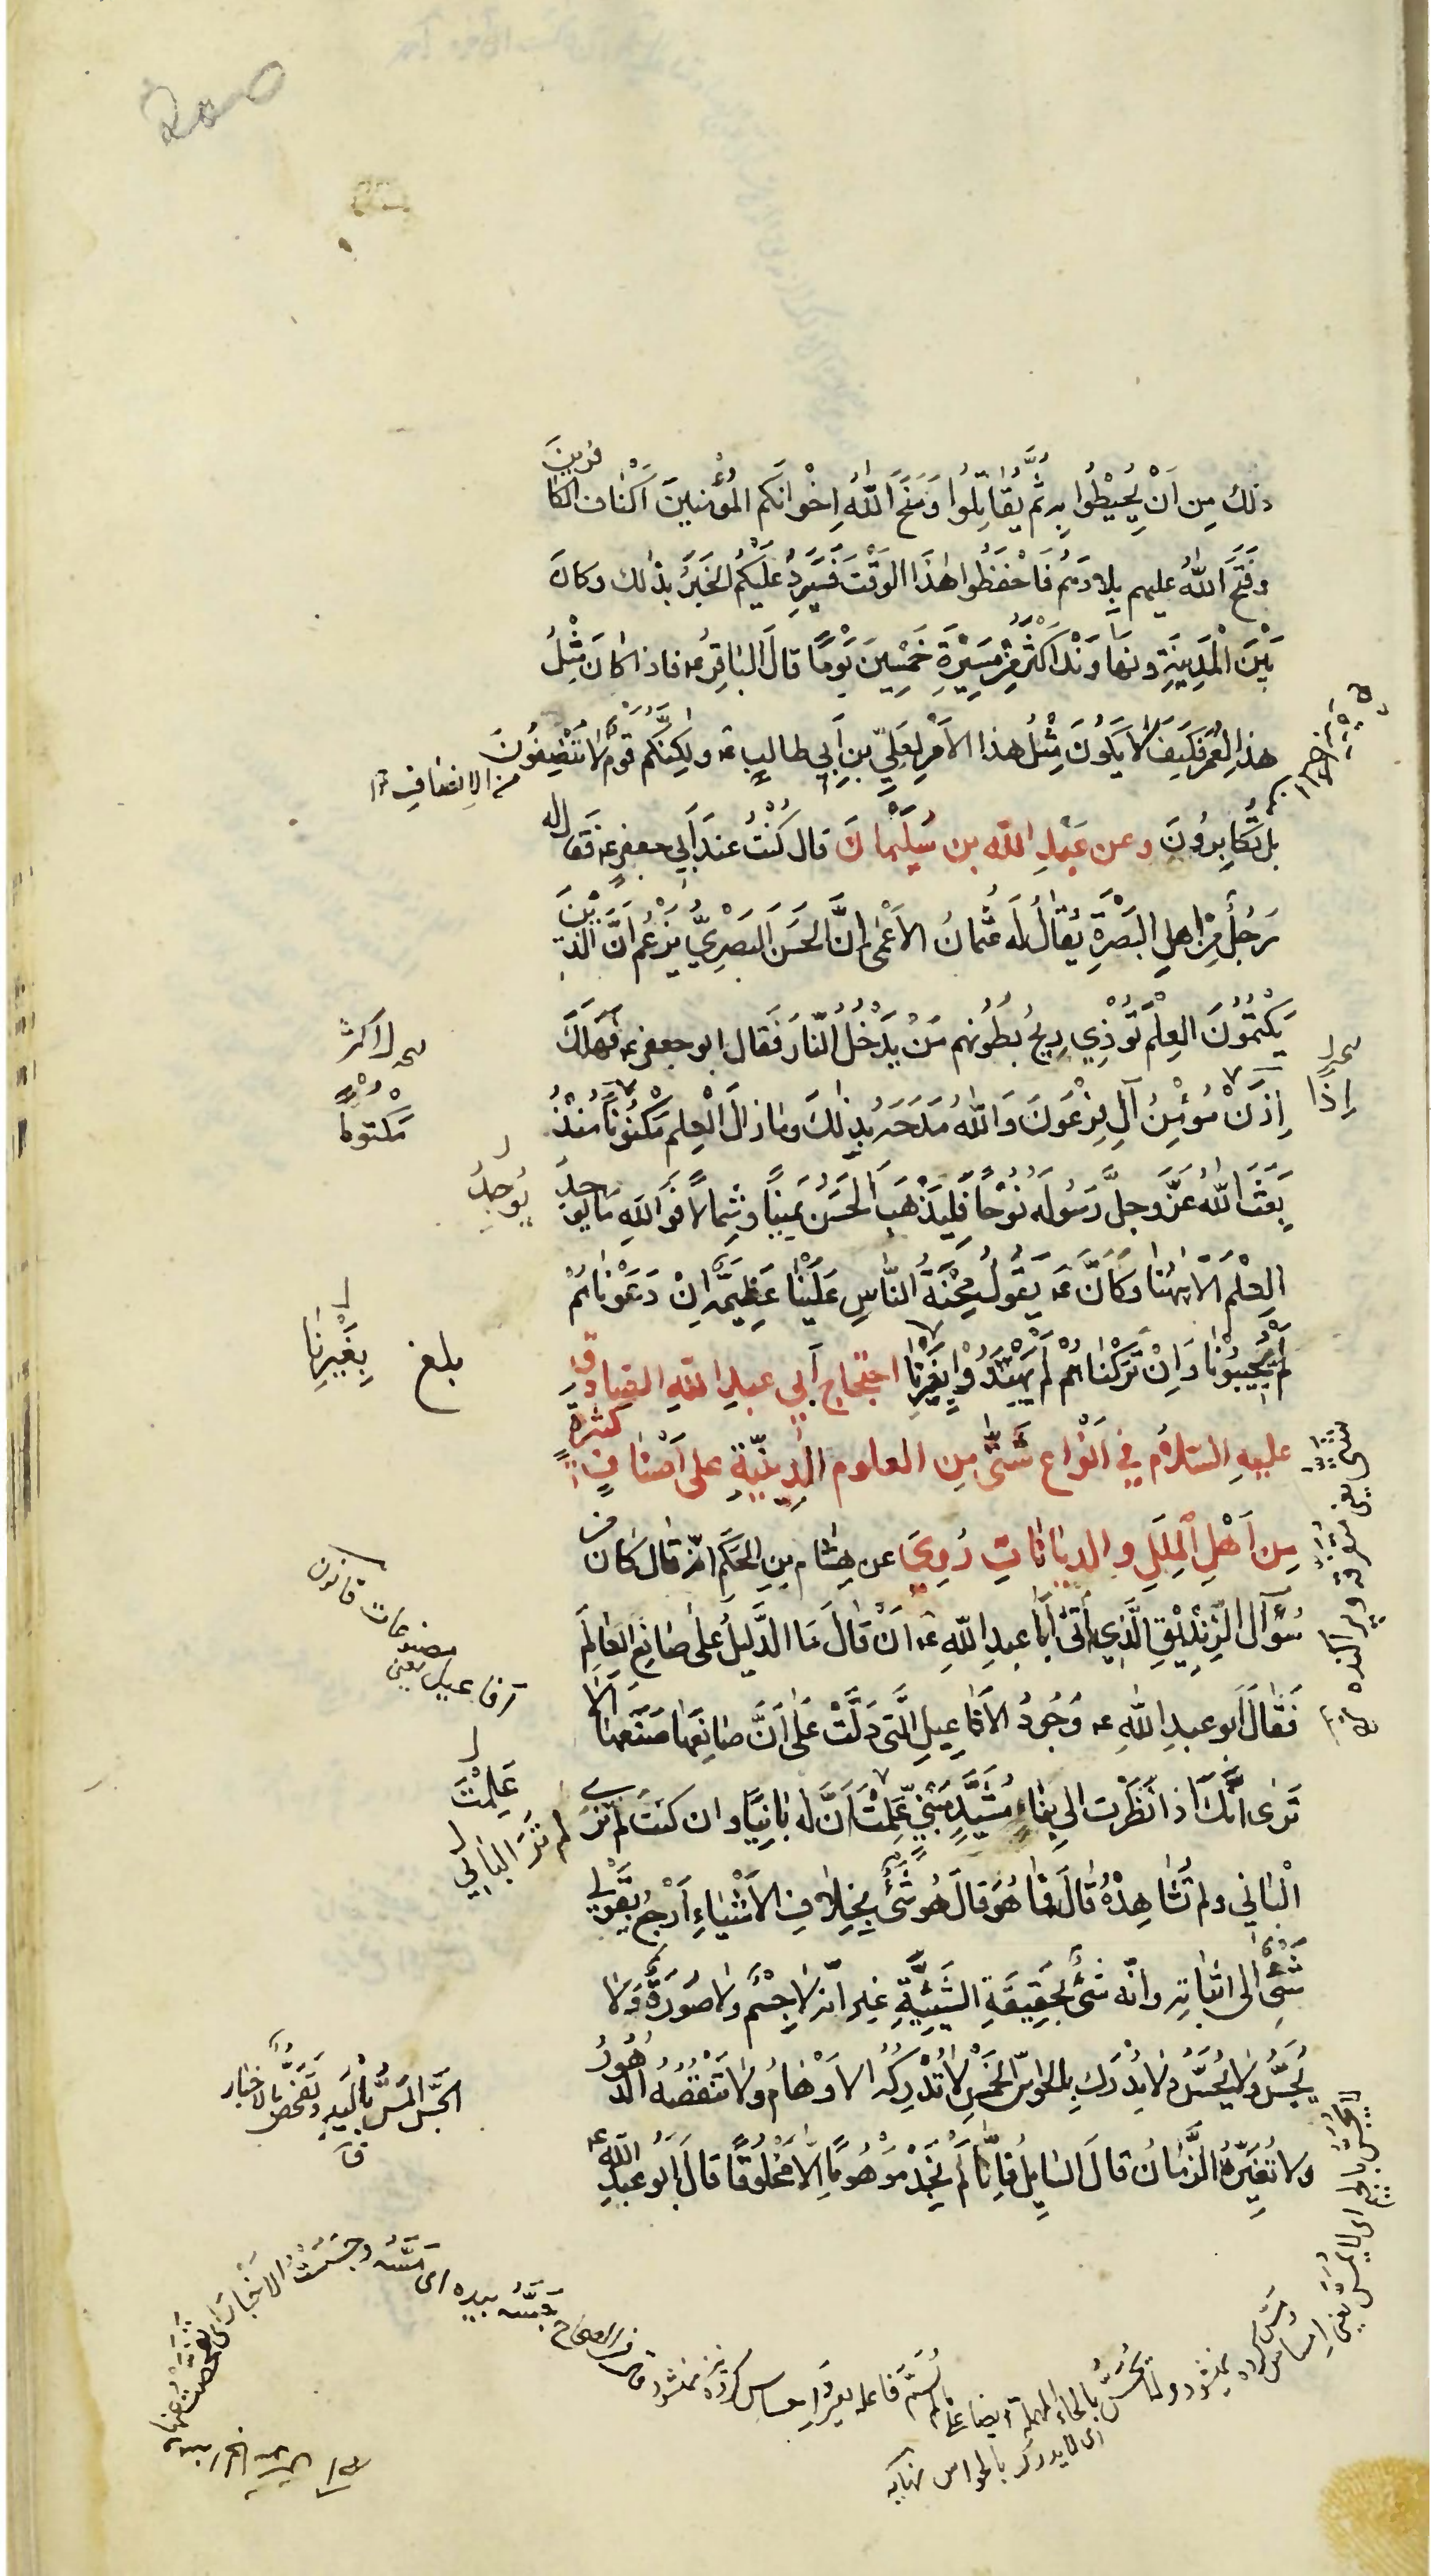 ذلك مِن اَنْ يُحِيْطُوا بِه ثُمَّ يُقَاتِلُوا وَمَنَحَ اللّٰهُ اِخْوَانَكم المُؤْمِنينَ اَكْتَافَ الكافرينَ
وفَتَحَ اللّٰهُ عليهم بِلادَهُم فَاحْفَظُوا هٰذَا الوَقْتَ فَسَيَرِدُ عَلَيْكُم الخَبَرُ بذٰلك وكانَ
بَيْنَ الْمَدِينَةِ ونهاوَنْد اَكْثَرُ مِنْ مَسِيْرَةِ خَمْسِينَ يَوْمًا قالَ الباقِرُ عه فاذا كانَ مِثْلُ
هذا لِعُمَر فكَيفَ لا يَكُونَ مِثْلُ هذا الاَمْرِ لِعَلِيّ بنِ اَبي طالبٍ عه ولكِنَّكم قَومٌ لا تُنْصِفُونَ
من الانصاف ١٢
بل تُكابِرُونَ وعن عَبْدِ اللّٰه بن سُلَيْمانَ قال كُنْتُ عندَ اَبي جعفرٍ عه فَقَالَ له
رَجُلٌ مِنْ اهلِ البَصْرَةِ يُقالُ لَه عُثْمانُ الاَعْمٰى اِنَّ الحَسَنَ البَصْرِيَّ يَزْعُمُ اَنَّ الَّذينَ
يَكْتُمُونَ العِلْمَ تُوْذِي رِيحُ بُطُونِهم مَنْ يَدْخُلُ النّارَ فَقال ابو جعفرٍ عه فَهَلَكَ
اِذَنْ مُؤْمِنُ آلِ فِرْعَونَ وَاللّٰهُ مَدَحَهُ بِذٰلكَ وما زالَ الْعِلم مَكْتُومًا مُنْذُ
اِذًا
مَكتومًا
بَعَثَ اللّٰهُ عَزَّ وجلَّ رَسُولَه نُوْحًا فَليَذْهَبِ الحَسَنُ يَمِينًا وَشِمالًا فَوَاللّٰهِ ما يُوجَدُ
يُوجَدُ
العِلْمُ اِلّا هٰهُنا وَكانَ عه يَقُولُ مِحْنَةُ النّاسِ عَلَيْنا عَظِيمَةٌ اِنْ دَعَوْناهُمْ
لَمْ يُجِيبُوْنا وَاِنْ تَرَكْناهُمْ لَمْ يَهْتَدُوْا بِغَيْرِنا احتجاج اَبي عبدِ اللّٰهِ الصّادقِ
بلغ
بِغَيْرِنا
عليهِ السّلامُ في اَنْواعٍ شَتّٰى مِن العلوم الدِّينيّةِ على اَصْنافٍ كثيرةٍ
مِن اَهْلِ المِلَلِ والدِّياناتِ رُوِيَ عن هِشامِ بنِ الحَكَمِ انّه قال كان من
سُؤَال الزِّنْدِيْقِ الَّذِي اَتٰى اَبا عبدِ اللّٰهِ عه اَنْ قالَ مَا الدَّليلُ عَلٰى صانِعِ العالَمِ
فَقالَ اَبو عبدِ اللّٰهِ عه وُجُودُ الاَفاعِيلِ الَّتي دَلَّتْ عَلٰى اَنَّ صانِعَها صَنَعَها اَلا
افاعيل يعنى
تَرٰى اَنَّكَ اِذا نَظَرْتَ اِلى بِناءٍ مُشَيَّدٍ مَبْنِيٍّ عَلِمْتَ اَنَّ لَه بانِيًا وان كنتَ لم تَرَ
عَلِمْتَ
لم تَرَ البانِي
الْبانِي ولم تُشاهِدْهُ قالَ فما هُوَ قالَ هُوَ شَيْءٌ بِخِلافِ الاَشْياءِ اَرْجِعُ بِقَولي
شَيْءٌ الى اثباتِه وانّه شَيْءٌ بِحَقِيقَةِ الشَّيْئِيَّةِ غير انّه لا جِسْمٌ ولا صُورَةٌ وَلا
يُجَسُّ ولا يُحَسُّ ولا يُدْرَك بِالحَواسِّ الخَمْسِ لا تُدْرِكُه الاَوْهامُ ولا تَنْقُصُه الدُّهُورُ
الجَسُّ المَسُّ بِاليَدِ وتَفَحُّصُ الاَخبار
ق
ولا تُغَيِّرُهُ الزَّمانُ قالَ السّايِلُ فَاِنّا لَمْ نَجِدْ مَوْهُومًا اِلّا مَخْلُوقًا قالَ اَبو عبدِ اللّٰه عه
جَسَّهُ بيده اى مَسَّه وجَسَسْتُ الاَخْبارَ اى تَفَحَّصْتُ عنها
اى لا يدرك بالحواس